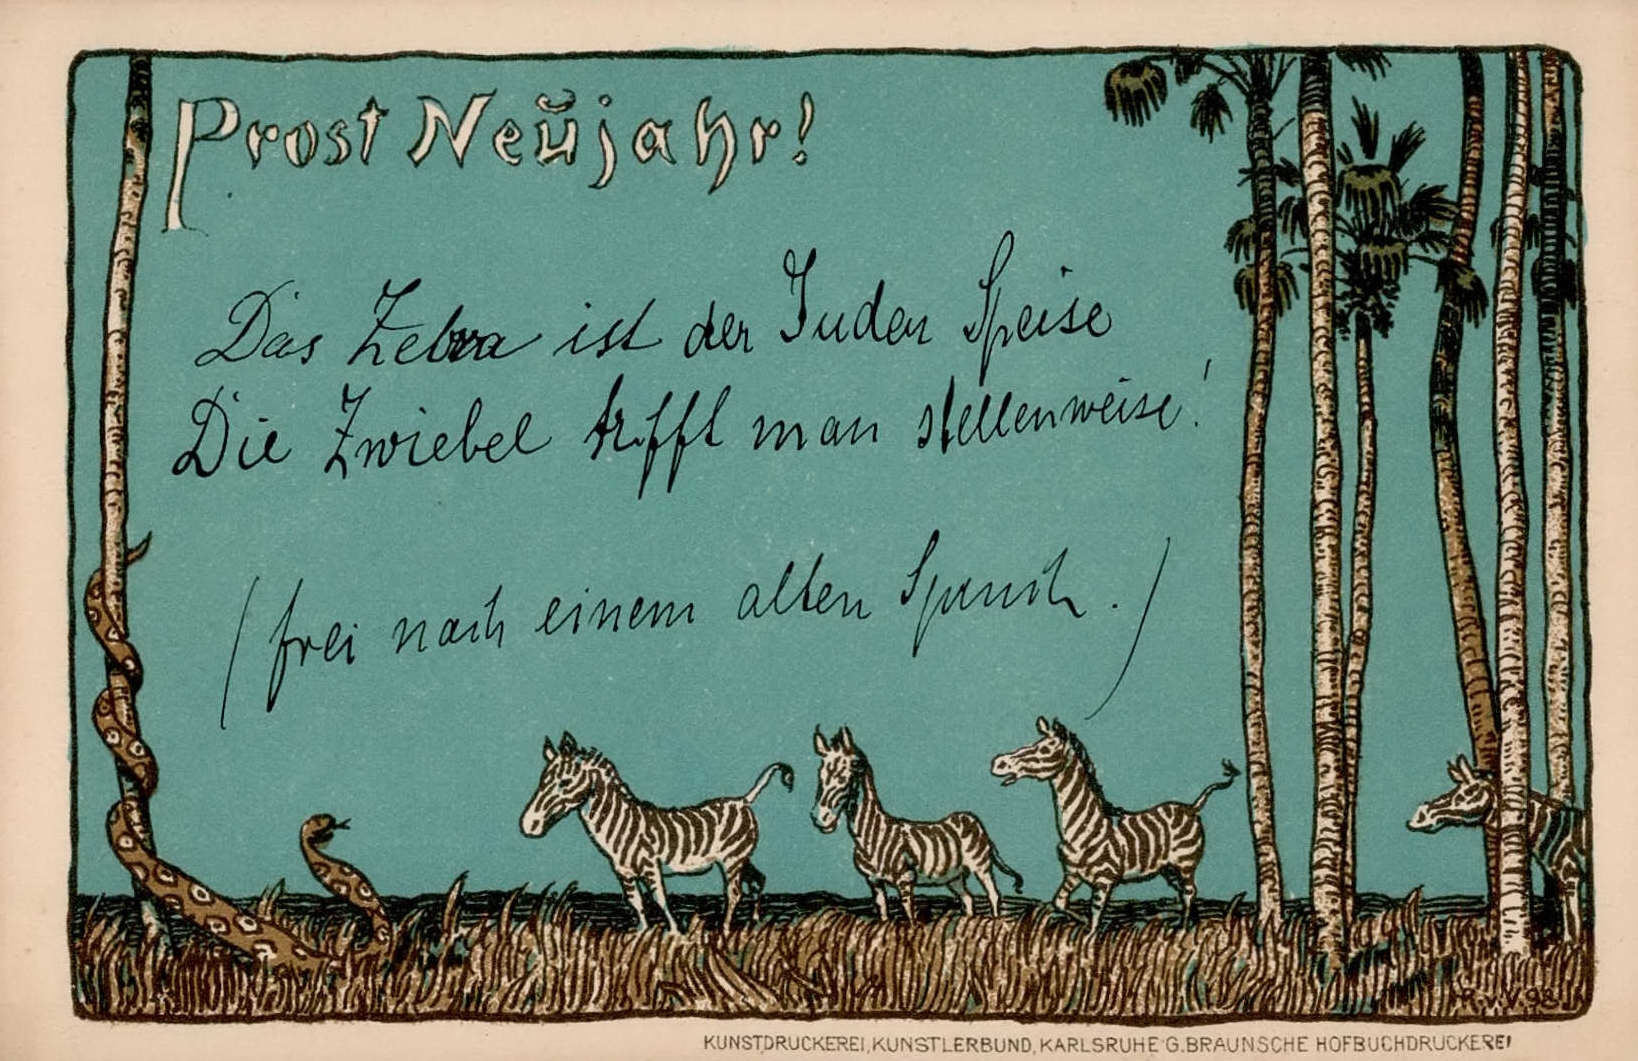 Prost Neŭjahr!
Das Zebra ist der Juden Speise
Die Zwiebel trifft man stellenweise!
(frei nach einem alten Spruch.)
R.v.V.98
KUNSTDRUCKEREI, KUNSTLERBUND, KARLSRUHE G.BRAUNSCHE HOFBUCHDRUCKEREI